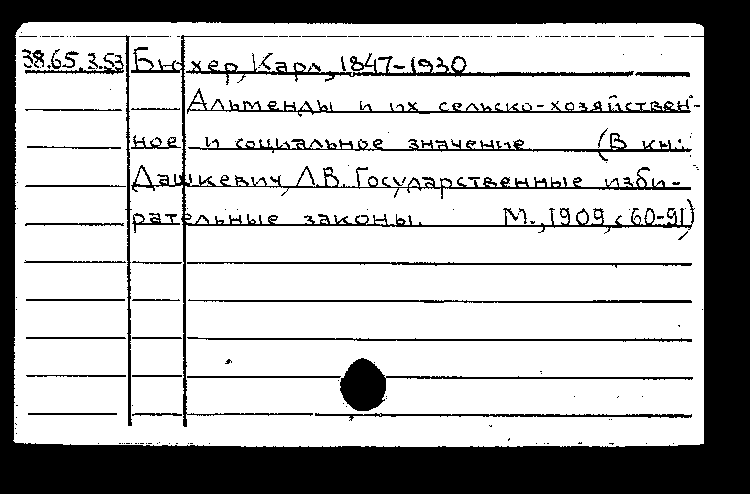 38.65.3.53 Бюхер, Карл, 1847-1930
Альменды и их сельско-хозяйствен-
ное и социальное значение (В кн.:
Дашкевич, Л.В. Государственные изби-
рательные законы. М., 1909, с 60-91)